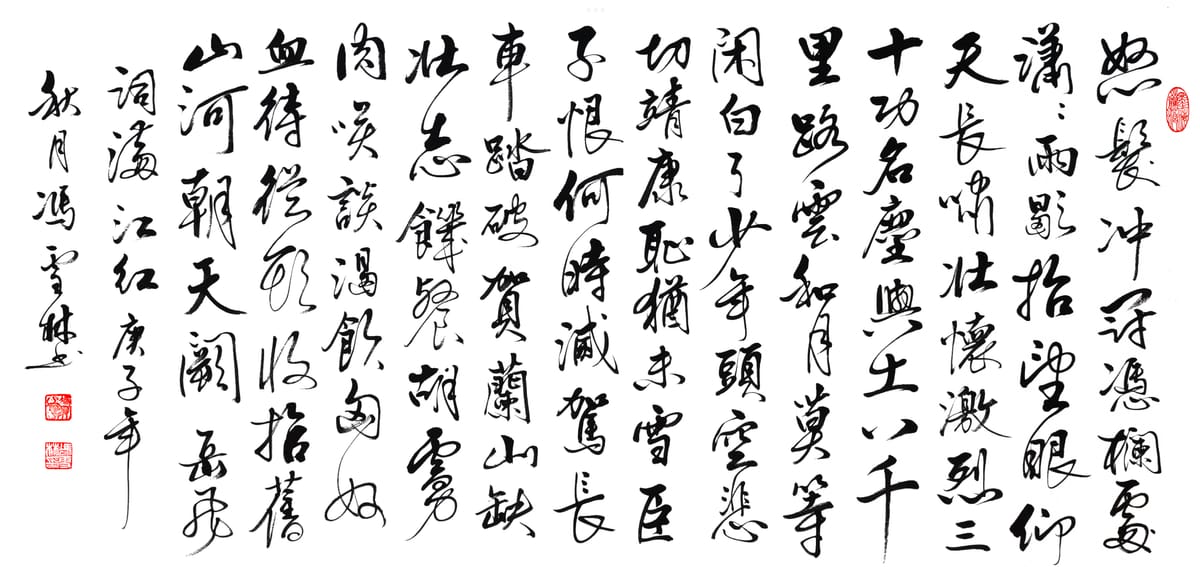 怒髮冲冠憑欄處
瀟瀟雨歇抬望眼仰
天長嘯壯懷激烈三
十功名塵與土八千
里路雲和月莫等
閑白了少年頭空悲
切靖康恥猶未雪臣
子恨何時滅駕長
車踏破賀蘭山缺
壯志饑餐胡虜
肉笑談渴飲匈奴
血待從頭收拾舊
山河朝天闕 岳飛
詞滿江紅庚子年
秋月馮雪林书